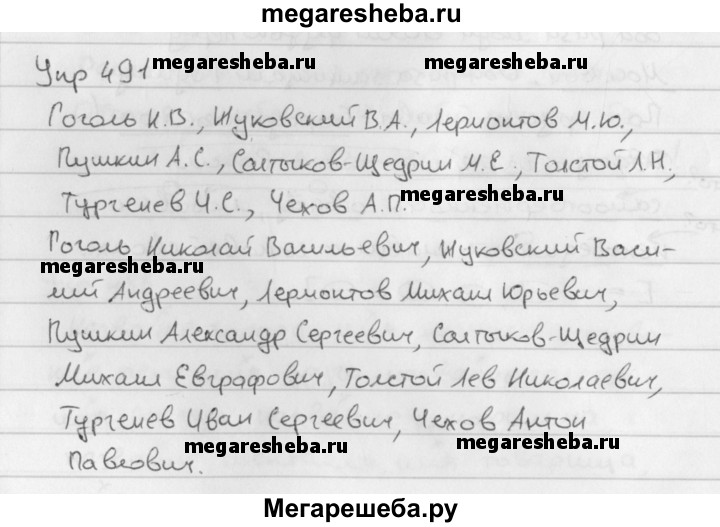 megaresheba.ru
Упр 491
megaresheba.ru megaresheba.ru
Гоголь Н.В., Жуковский В.А., Лермонтов М.Ю.,
Пушкин А.С., Салтыков-Щедрин М.Е., Толстой Л.Н.,
Тургенев И.С., Чехов А.П.
megaresheba.ru
Гоголь Николай Васильевич, Жуковский Васи-
megaresheba.ru
лий Андреевич, Лермонтов Михаил Юрьевич,
Пушкин Александр Сергеевич, Салтыков-Щедрин
Михаил Евграфович, Толстой Лев Николаевич,
Тургенев Иван Сергеевич, Чехов Антон
megaresheba.ru megaresheba.ru
Павлович.
Мегарешеба.ру